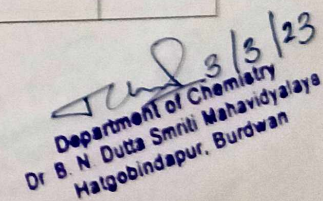 3/3/23
Department of Chemistry
Dr B. N. Dutta Smriti Mahavidyalaya
Hatgobindapur, Burdwan